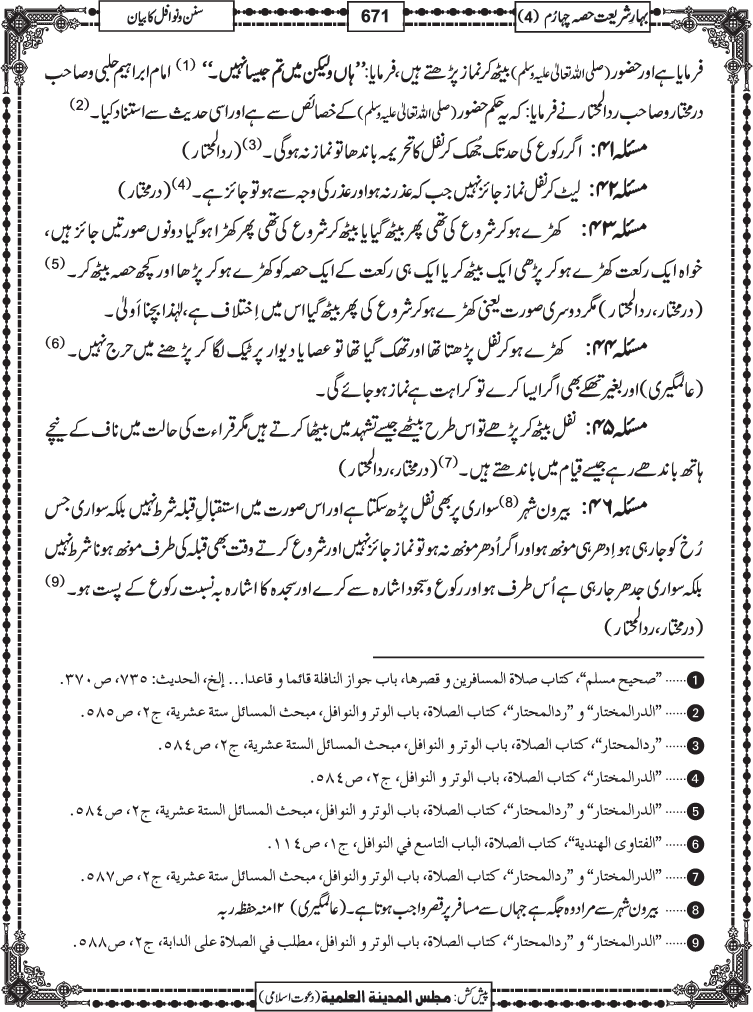 بہار شریعت حصہ چہارم (4)
671
سنن و نوافل کا بیان
فرمایا ہے اور حضور (صلی اللہ تعالیٰ علیہ وسلم) بیٹھ کر نماز پڑھتے ہیں، فرمایا: ”ہاں ولیکن میں تم جیسا نہیں۔“ (1) امام ابراہیم حلبی وصاحب
درمختار وصاحب ردالمحتار نے فرمایا: کہ یہ حکم حضور (صلی اللہ تعالیٰ علیہ وسلم) کے خصائص سے ہے اور اسی حدیث سے استناد کیا۔ (2)
مسئلہ ۴۱: اگر رکوع کی حد تک جُھک کر نفل کا تحریمہ باندھا تو نماز نہ ہوگی۔ (3) (ردالمحتار)
مسئلہ ۴۲: لیٹ کر نفل نماز جائز نہیں جب کہ عذر نہ ہو اور عذر کی وجہ سے ہو تو جائز ہے۔ (4) (درمختار)
مسئلہ ۴۳: کھڑے ہو کر شروع کی تھی پھر بیٹھ گیا یا بیٹھ کر شروع کی تھی پھر کھڑا ہو گیا دونوں صورتیں جائز ہیں،
خواہ ایک رکعت کھڑے ہو کر پڑھی ایک بیٹھ کر یا ایک ہی رکعت کے ایک حصہ کو کھڑے ہو کر پڑھا اور کچھ حصہ بیٹھ کر۔ (5)
(درمختار، ردالمحتار) مگر دوسری صورت یعنی کھڑے ہو کر شروع کی پھر بیٹھ گیا اس میں اِختلاف ہے، لہٰذا بچنا اَولیٰ۔
مسئلہ ۴۴: کھڑے ہو کر نفل پڑھتا تھا اور تھک گیا تھا تو عصا یا دیوار پر ٹیک لگا کر پڑھنے میں حرج نہیں۔ (6)
(عالمگیری) اور بغیر تھکے بھی اگر ایسا کرے تو کراہت ہے نماز ہو جائے گی۔
مسئلہ ۴۵: نفل بیٹھ کر پڑھے تو اس طرح بیٹھے جیسے تشہد میں بیٹھا کرتے ہیں مگر قراءت کی حالت میں ناف کے نیچے
ہاتھ باندھے رہے جیسے قیام میں باندھتے ہیں۔ (7) (درمختار، ردالمحتار)
مسئلہ ۴۶: بیرون شہر (8) سواری پر بھی نفل پڑھ سکتا ہے اور اس صورت میں استقبالِ قبلہ شرط نہیں بلکہ سواری جس
رُخ کو جا رہی ہو اِدھر ہی مونھ ہو اور اگر اُدھر مونھ نہ ہو تو نماز جائز نہیں اور شروع کرتے وقت بھی قبلہ کی طرف مونھ ہونا شرط نہیں
بلکہ سواری جدھر جا رہی ہے اُس طرف ہو اور رکوع و سجود اشارہ سے کرے اور سجدہ کا اشارہ بہ نسبت رکوع کے پست ہو۔ (9)
(درمختار، ردالمحتار)
1 ...... ”صحيح مسلم“، كتاب صلاة المسافرين و قصرها، باب جواز النافلة قائما و قاعدا... إلخ، الحديث: ٧٣٥، ص٣٧٠.
2 ...... ”الدرالمختار“ و ”ردالمحتار“، كتاب الصلاة، باب الوتر والنوافل، مبحث المسائل ستة عشرية، ج٢، ص٥٨٥.
3 ...... ”ردالمحتار“، كتاب الصلاة، باب الوتر و النوافل، مبحث المسائل الستة عشرية، ج٢، ص٥٨٤.
4 ...... ”الدرالمختار“، كتاب الصلاة، باب الوتر و النوافل، ج٢، ص٥٨٤.
5 ...... ”الدرالمختار“ و ”ردالمحتار“، كتاب الصلاة، باب الوتر و النوافل، مبحث المسائل الستة عشرية، ج٢، ص٥٨٤.
6 ...... ”الفتاوى الهندية“، كتاب الصلاة، الباب التاسع في النوافل، ج١، ص١١٤.
7 ...... ”الدرالمختار“ و ”ردالمحتار“، كتاب الصلاة، باب الوتر والنوافل، مبحث المسائل ستة عشرية، ج٢، ص٥٨٧.
8 ...... بیرون شہر سے مراد وہ جگہ ہے جہاں سے مسافر پر قصر واجب ہوتا ہے۔ (عالمگیری) ۱۲ منہ حفظہ ربہ
9 ...... ”الدرالمختار“ و ”ردالمحتار“، كتاب الصلاة، باب الوتر و النوافل، مطلب في الصلاة على الدابة، ج٢، ص٥٨٨.
پیش کش: مجلس المدينة العلمية (دعوت اسلامی)